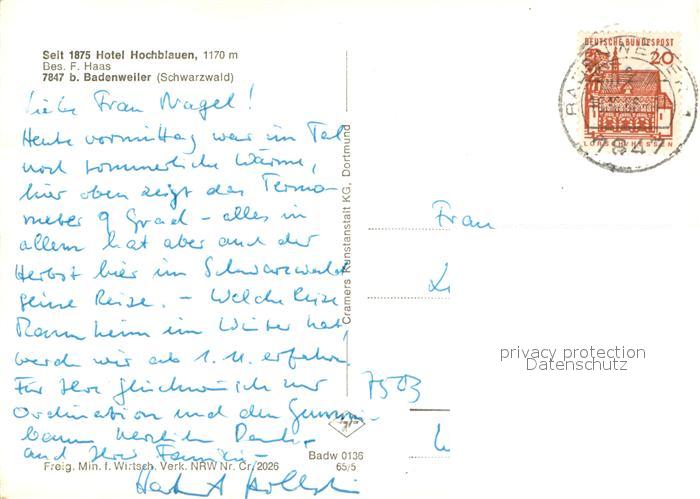 Seit 1875 Hotel Hochblauen, 1170 m
Bes. F. Haas
7847 b. Badenweiler (Schwarzwald)
Liebe Frau Nagel!
Heute vormittag war im Tal
noch sommerliche Wärme,
hier oben zeigt das Termo-
meter 9 Grad - alles in
allem hat aber auch der
Herbst hier im Schwarzwald
seine Reize. - Welche Reize
Mannheim im Winter hat,
werden wir ab 1. 11. erfahren.
Für Ihre Glückwünsche zur
Ordination und den Gummi-
baum herzlichen Dank -
auch Ihrer Familie -
Freig. Min. f. Wirtsch. Verk. NRW Nr. Cr/2026
Badw 0136
65/5
Cramers Kunstanstalt KG, Dortmund
DEUTSCHE BUNDESPOST
20
LORSCH/HESSEN
BADENWEILER 1
7847
Frau
7503
privacy protection
Datenschutz